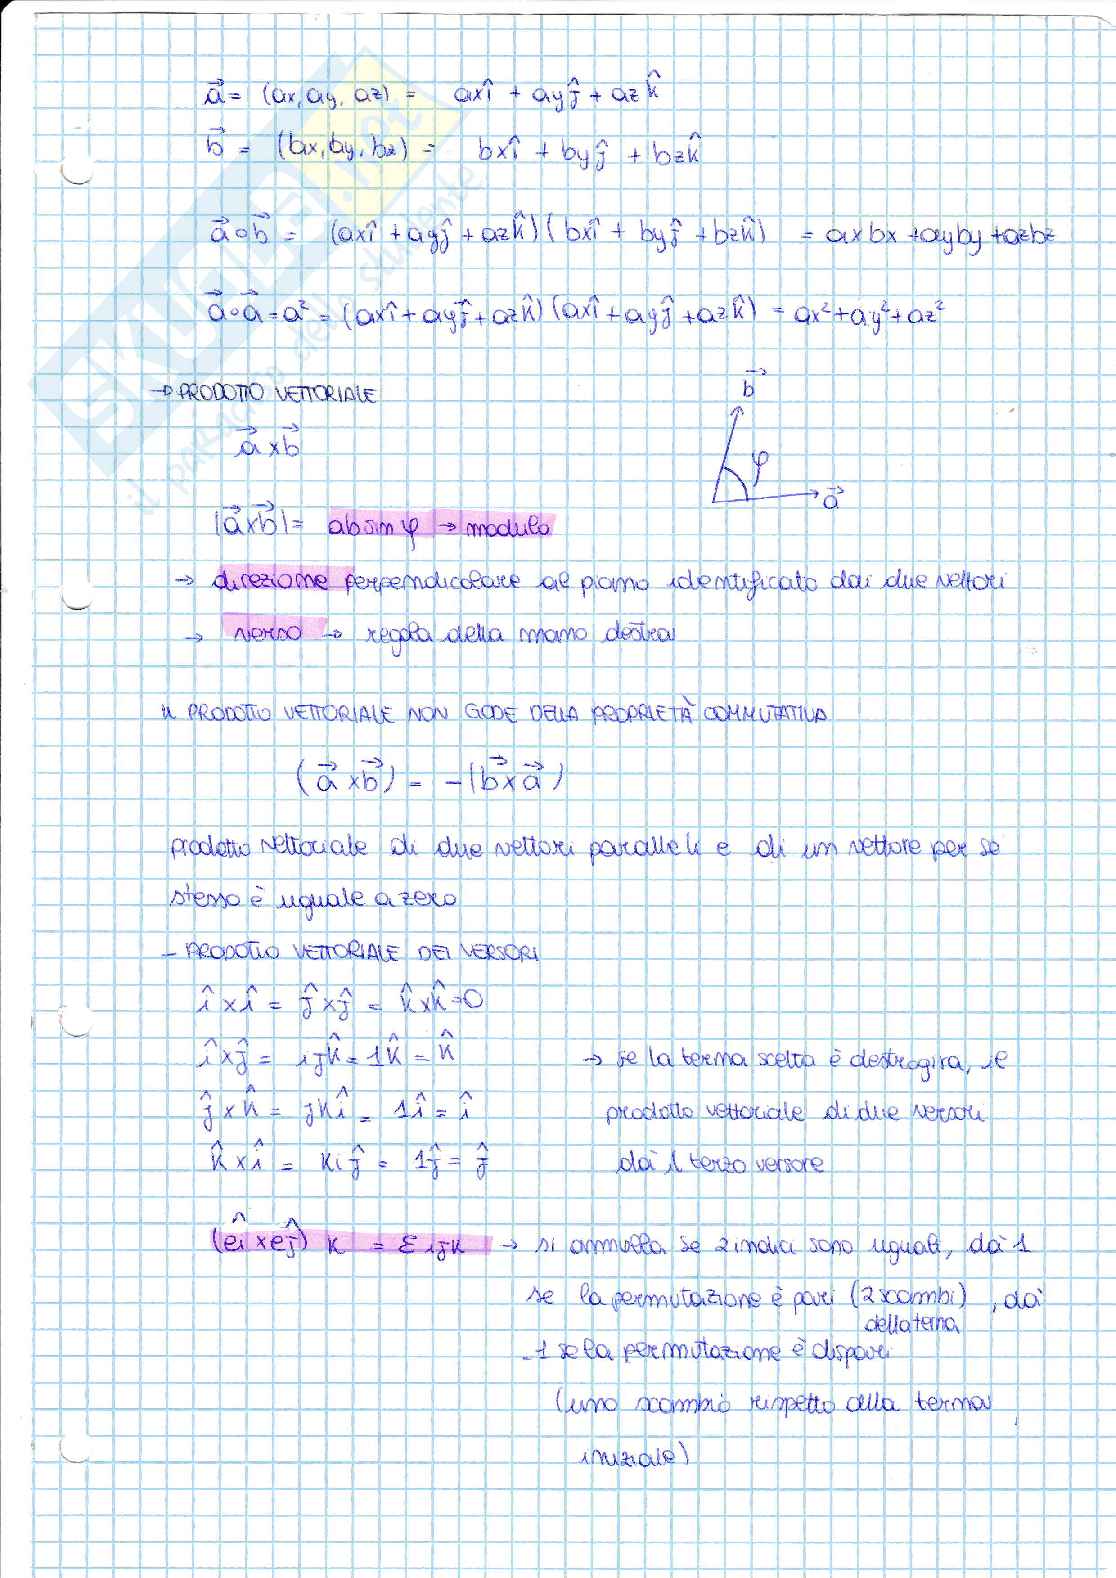 a⃗ = (ax, ay, az) = axî + ayĵ + azk̂
b⃗ = (bx, by, bz) = bxî + byĵ + bzk̂
a⃗∘b⃗ = (axî + ayĵ + azk̂)(bxî + byĵ + bzk̂) = axbx + ayby + azbz
a⃗∘a⃗ = a² = (axî + ayĵ + azk̂)(axî + ayĵ + azk̂) = ax² + ay² + az²
→ PRODOTTO VETTORIALE
a⃗ x b⃗
b⃗
φ
a⃗
|a⃗ x b⃗| = ab sin φ → modulo
→ direzione perpendicolare al piano identificato dai due vettori
→ verso → regola della mano destra
il PRODOTTO VETTORIALE NON GODE DELLA PROPRIETÀ COMMUTATIVA
(a⃗ x b⃗) = -(b⃗ x a⃗)
prodotto vettoriale di due vettori paralleli e di un vettore per se
stesso è uguale a zero
- PRODOTTO VETTORIALE DEI VERSORI
î x î = ĵ x ĵ = k̂ x k̂ = 0
î x ĵ = ijk̂ = 1k̂ = k̂ → se la terna scelta è destrogira, il
ĵ x k̂ = jkî = 1î = î prodotto vettoriale di due versori
k̂ x î = kiĵ = 1ĵ = ĵ dà il terzo versore
(êi x êj) k = εijk → si annulla se 2 indici sono uguali, dà 1
se la permutazione è pari (2 scambi), dà
della terna
-1 se la permutazione è dispari
(uno scambio rispetto alla terna
iniziale)
SKUOLA.net
il paradiso dello studente